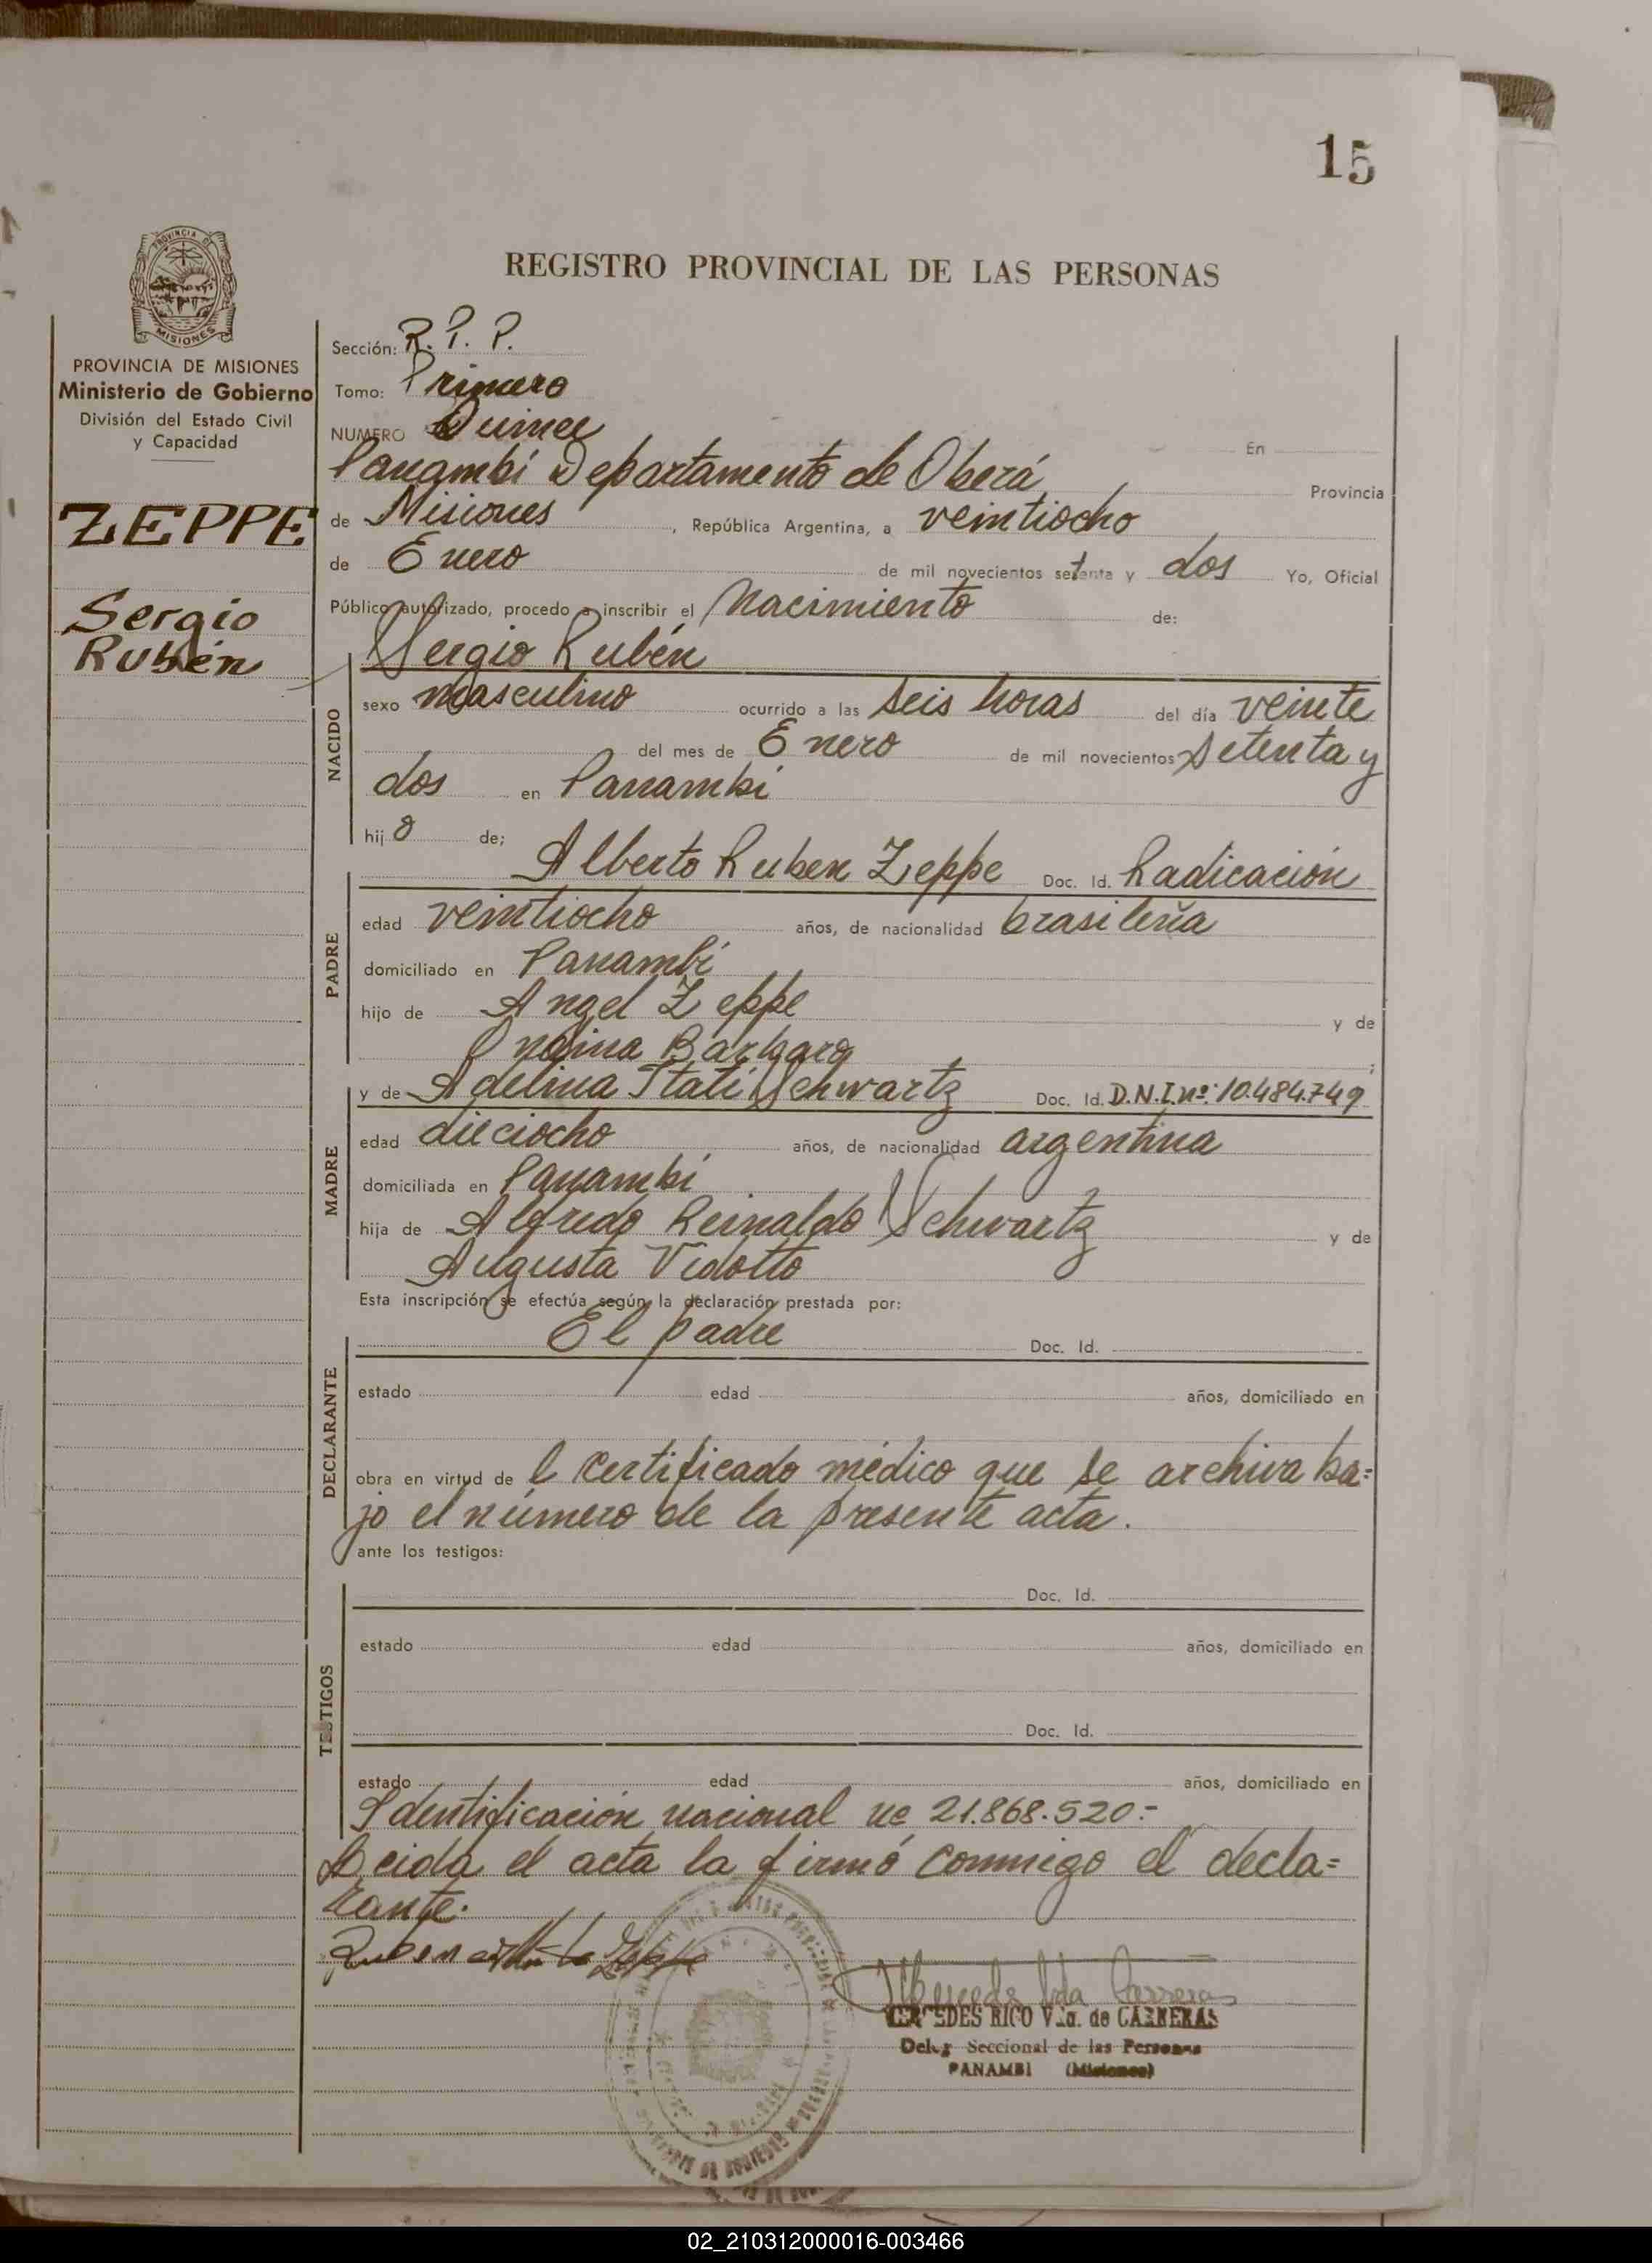 15
PROVINCIA DE
MISIONES
REGISTRO PROVINCIAL DE LAS PERSONAS
PROVINCIA DE MISIONES
Ministerio de Gobierno
División del Estado Civil
y Capacidad
ZEPPE
Sergio
Rubén
Sección: R. P. P.
Tomo: Primero
NUMERO Quince En
Panambí Departamento de Oberá, Provincia
de Misiones, República Argentina, a veintiocho
de Enero de mil novecientos setenta y dos Yo, Oficial
Público autorizado, procedo a inscribir el Nacimiento de:
Sergio Rubén
NACIDO
sexo masculino ocurrido a las seis horas del día veinte
del mes de Enero de mil novecientos setenta y
dos en Panambí
hijo de;
Alberto Ruben Zeppe Doc. Id. Radicación
PADRE
edad veintiocho años, de nacionalidad brasileña
domiciliado en Panambí
hijo de Angel Zeppe y de
Ondina Barbaro;
MADRE
y de Adelina Itatí Schwartz Doc. Id. D.N.I.nº: 10.484.749
edad dieciocho años, de nacionalidad argentina
domiciliada en Panambí
hija de Alfredo Reinaldo Schwartz y de
Augusta Vidotto
Esta inscripción se efectúa según la declaración prestada por:
El padre Doc. Id.
DECLARANTE
estado edad años, domiciliado en
obra en virtud de l certificado médico que se archiva ba=
jo el número de la presente acta.
ante los testigos:
Doc. Id.
TESTIGOS
estado edad años, domiciliado en
Doc. Id.
estado edad años, domiciliado en
Identificación nacional nº 21.868.520.-
Leida el acta la firmó conmigo el decla=
rante.
Ruben Zeppe
Mercedes Vda Carreras
MERCEDES RICO Vda. de CARRERAS
Deleg Seccional de las Personas
PANAMBI (Misiones)
02_210312000016-003466